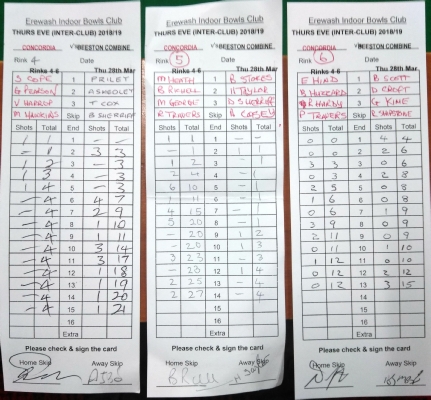 Erewash Indoor Bowls Club
THURS EVE (INTER-CLUB) 2018/19
CONCORDIA V BEESTON COMBINE
Rink 4 Date
Rinks 4-6 Thu 28th Mar
S COPE 1 PRILET
G PEARSON 2 ASHOLET
V HARROP 3 T COX
Skip B SHERRIFF
Shots Total End Shots Total
1 1 1 - -
- 1 2 3 3
1 2 3 - 3
1 3 4 - 3
1 4 5 - 3
- 4 6 4 7
- 4 7 2 9
- 4 8 1 10
- 4 9 1 11
- 4 10 3 14
- 4 11 3 17
- 4 12 1 18
- 4 13 1 19
- 4 14 1 20
- 4 15 1 21
16
Extra
Please check & sign the card
Home Skip Away Skip
Erewash Indoor Bowls Club
THURS EVE (INTER-CLUB) 2018/19
CONCORDIA V BEESTON COMBINE
Rink 5 Date
Rinks 4-6 Thu 28th Mar
M HEATH 1 B STOKES
2 H TAYLOR
M GEORGE 3
R TRAVERS Skip B CASEY
Shots Total End Shots Total
1 1 1 - -
- 1 2
1 2 3 - 1
2 4 4 - 1
6 10 5 - 1
1 11 6 - 1
4 15 7 - 1
5 20 8 - 1
- 20 9 1 2
- 20 10 1 3
3 23 11 - 3
- 23 12 1 4
2 25 13 - 4
2 27 14 - 4
15
16
Extra
Please check & sign the card
Home Skip Away Skip
Erewash Indoor Bowls Club
THURS EVE (INTER-CLUB) 2018/19
CONCORDIA V BEESTON COMBINE
Rink 6 Date
Rinks 4-6 Thu 28th Mar
E HIND 1 B SCOTT
B HUBBARD 2 D CROFT
R HARDY 3 G KIME
P TRAVERS Skip
Shots Total End Shots Total
0 0 1 4 4
0 0 2 2 6
3 3 3 0 6
0 3 4 2 8
2 5 5 0 8
1 6 6 0 8
0 6 7 1 9
3 9 8 0 9
2 11 9 0 9
0 11 10 1 10
1 12 11 0 10
0 12 12 2 12
0 12 13 3 15
14
15
16
Extra
Please check & sign the card
Home Skip Away Skip